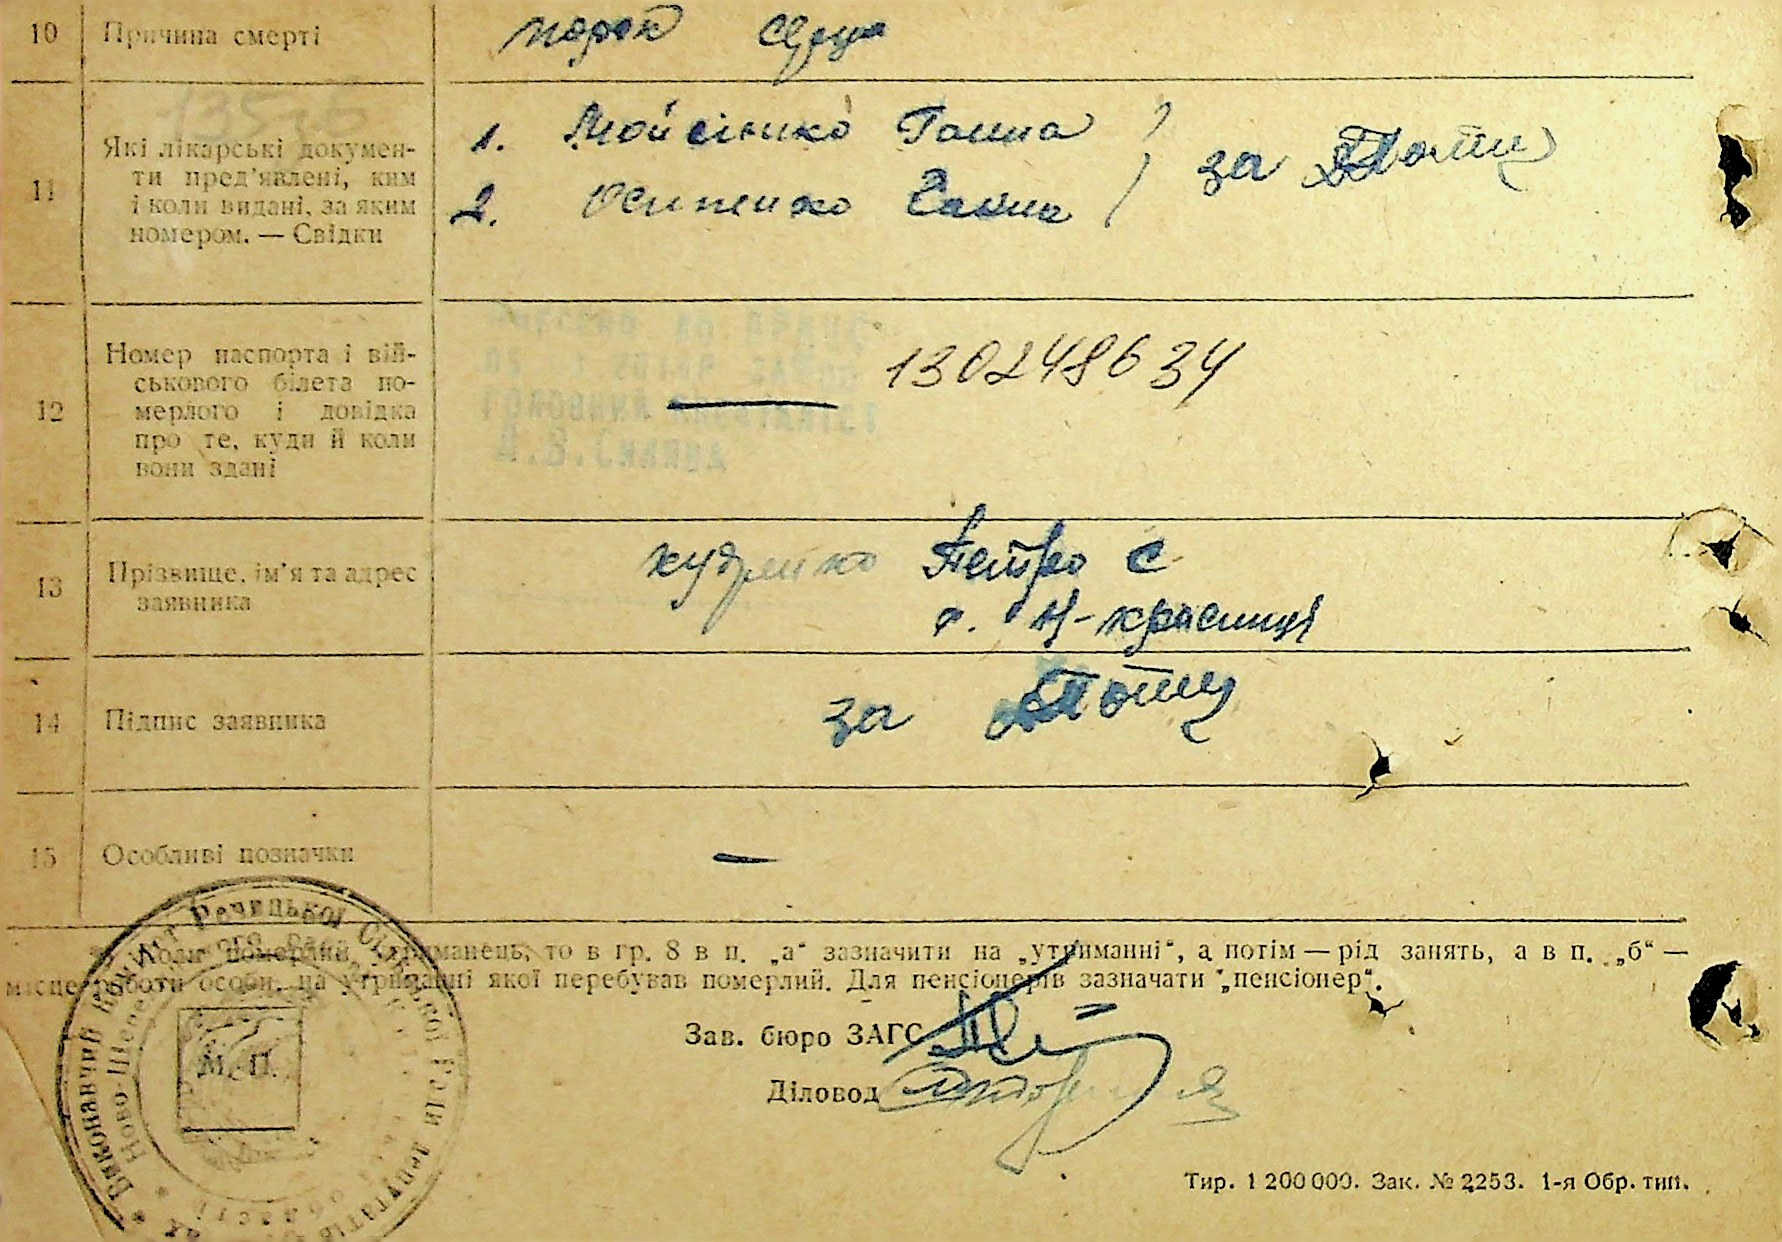 10 Причина смерти порок сердца
11 Які лікарські докумен-
ти пред'явлені, ким
і коли видані, за яким
номером. — Свідки
1. Мойсіенко Ганна
2. Осипенко Ганна
за
12 Номер паспорта і вій-
ськового білета по-
мерлого і довідка
про те, куди й коли
вони здані
130248634
13 Прізвище, ім'я та адрес
заявника
Петро С
с. Н-красниця
14 Підпис заявника
за
15 Особливі позначки —
Коли померлий утриманець, то в гр. 8 в п. „а“ зазначити на „утриманні“, а потім — рід занять, а в п. „б“ —
місце роботи особи, на утриманні якої перебував померлий. Для пенсіонерів зазначати „пенсіонер“.
Зав. бюро ЗАГС
Діловод
М. П.
Виконавчий комітет Речицької Сільської Ради депутатів
області
Тир. 1 200 000. Зак. № 2253. 1-я Обр. тип.